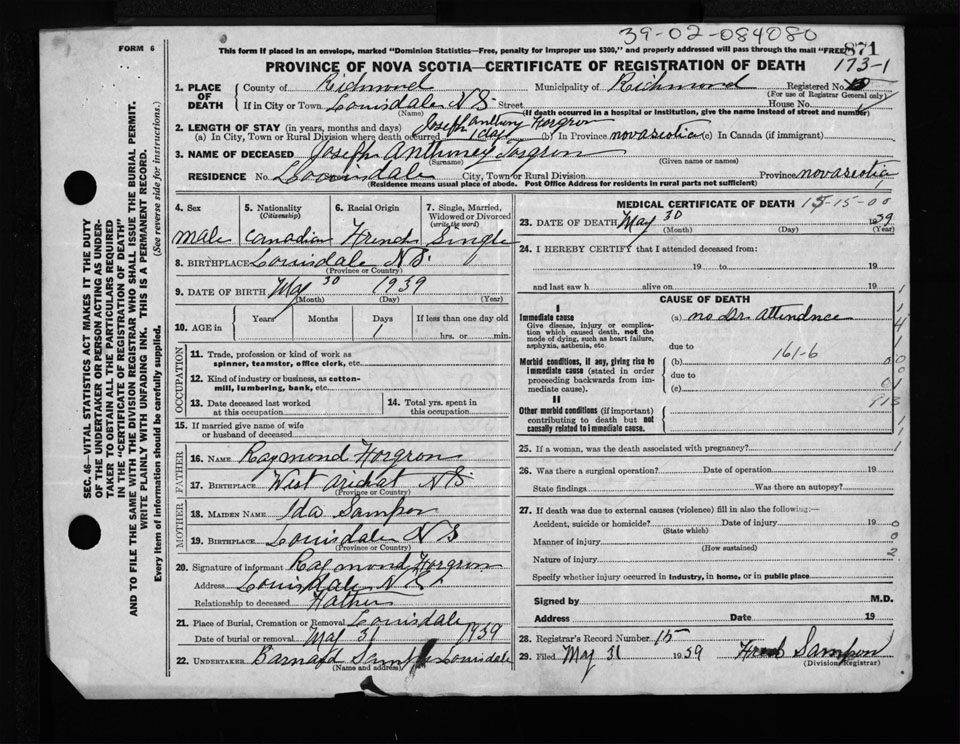 39-02-084080
FORM 6
This form if placed in an envelope, marked "Dominion Statistics—Free, penalty for improper use $300," and properly addressed will pass through the mail "FREE"
871
PROVINCE OF NOVA SCOTIA—CERTIFICATE OF REGISTRATION OF DEATH
173-1
1. PLACE OF DEATH
County of Richmond Municipality of Richmond Registered No.
(For use of Registrar General only)
If in City or Town Louisdale N S Street House No.
(Name) (If death occurred in a hospital or institution, give the name instead of street and number)
Joseph Anthony Forgron
2. LENGTH OF STAY (in years, months and days)
(a) In City, Town or Rural Division where death occurred 1 day (b) In Province novascotia (c) In Canada (if immigrant)
3. NAME OF DECEASED Joseph Anthoney Forgron
(Surname) (Given name or names)
RESIDENCE No. Louisdale City, Town or Rural Division Province novascotia
(Residence means usual place of abode. Post Office Address for residents in rural parts not sufficient)
4. Sex 5. Nationality (Citizenship) 6. Racial Origin 7. Single, Married, Widowed or Divorced (write the word)
male Canadian French Single
8. BIRTHPLACE Louisdale N S.
(Province or Country)
9. DATE OF BIRTH May 30 1939
(Month) (Day) (Year)
10. AGE in Years Months Days If less than one day old
1 hrs. or min.
OCCUPATION
11. Trade, profession or kind of work as spinner, teamster, office clerk, etc.
12. Kind of industry or business, as cotton-mill, lumbering, bank, etc.
13. Date deceased last worked at this occupation
14. Total yrs. spent in this occupation
15. If married give name of wife or husband of deceased
FATHER
16. NAME Raymond Forgron
17. BIRTHPLACE West Arichat N S
(Province or Country)
MOTHER
18. MAIDEN NAME Ida Sampson
19. BIRTHPLACE Louisdale N S
(Province or Country)
20. Signature of informant Raymond Forgron
Address Louisdale N S
Relationship to deceased Father
21. Place of Burial, Cremation or Removal Louisdale
Date of burial or removal May 31 1939
22. UNDERTAKER Barnard Louisdale
(Name and address)
MEDICAL CERTIFICATE OF DEATH 15-15-00
23. DATE OF DEATH May 30 1939
(Month) (Day) (Year)
24. I HEREBY CERTIFY that I attended deceased from:
19 to 19
and last saw h alive on 19
CAUSE OF DEATH
I
Immediate cause
Give disease, injury or complication which caused death, not the mode of dying, such as heart failure, asphyxia, asthenia, etc.
(a) no Dr. attendnce
due to
161-6
Morbid conditions, if any, giving rise to immediate cause (stated in order proceeding backwards from immediate cause).
(b)
due to
(c)
II
Other morbid conditions (if important) contributing to death but not causally related to immediate cause.
25. If a woman, was the death associated with pregnancy?
26. Was there a surgical operation? Date of operation 19
State findings Was there an autopsy?
27. If death was due to external causes (violence) fill in also the following:—
Accident, suicide or homicide? Date of injury 19
(State which)
Manner of injury
(How sustained)
Nature of injury
Specify whether injury occurred in industry, in home, or in public place
Signed by M.D.
Address Date 19
28. Registrar's Record Number 15
29. Filed May 31 1939 Sampson
(Division Registrar)
SEC. 46—VITAL STATISTICS ACT MAKES IT THE DUTY
OF THE UNDERTAKER OR PERSON ACTING AS UNDER-
TAKER TO OBTAIN ALL THE PARTICULARS REQUIRED
IN THE "CERTIFICATE OF REGISTRATION OF DEATH"
AND TO FILE THE SAME WITH THE DIVISION REGISTRAR WHO SHALL ISSUE THE BURIAL PERMIT.
WRITE PLAINLY WITH UNFADING INK. THIS IS A PERMANENT RECORD.
Every item of information should be carefully supplied. (See reverse side for instructions.)